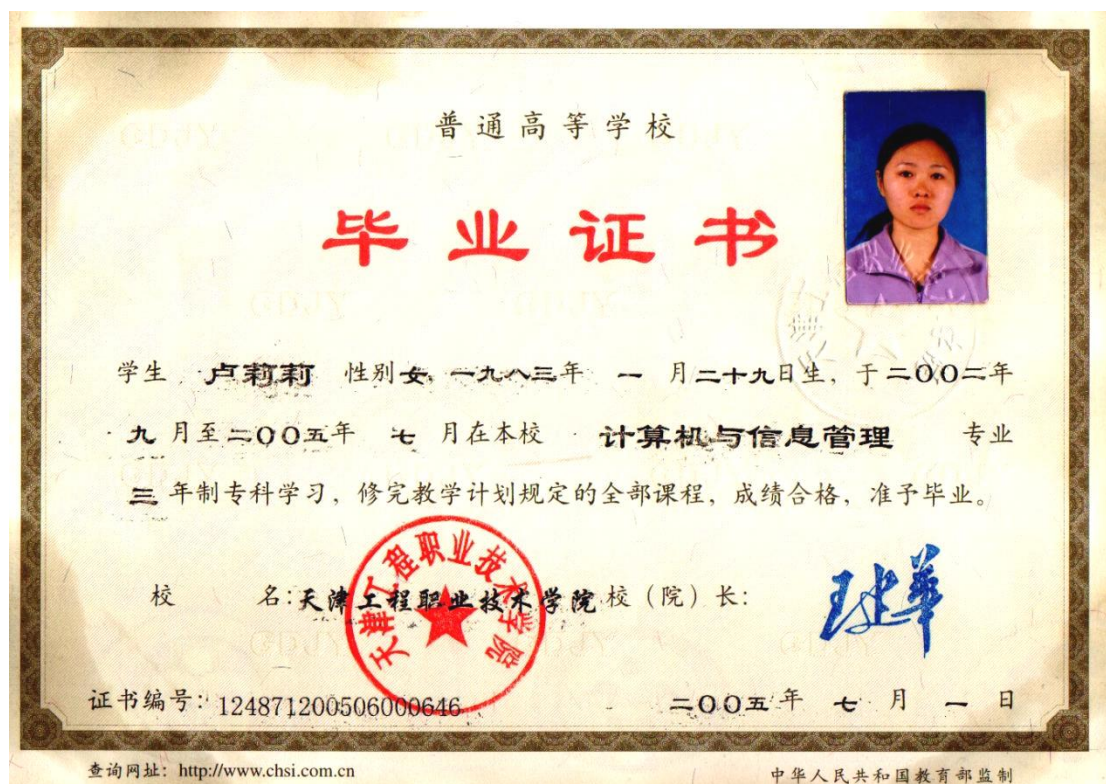 普通高等学校
毕业证书
学生 卢莉莉 性别 女，一九八三年 一 月二十九日生，于二〇〇二年
九 月至二〇〇五年 七 月在本校 计算机与信息管理 专业
三 年制专科学习，修完教学计划规定的全部课程，成绩合格，准予毕业。
校 名：天津工程职业技术学院 校（院）长：
天津工程职业技术学院
证书编号：124871200506000646 二〇〇五年 七 月 一 日
查询网址：http://www.chsi.com.cn 中华人民共和国教育部监制